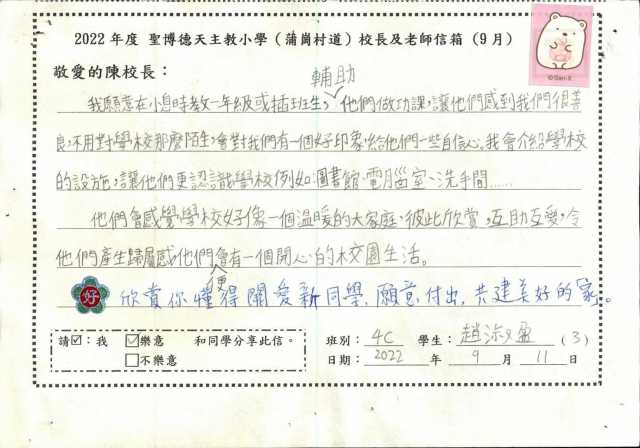 2022 年度 聖博德天主教小學（蒲崗村道）校長及老師信箱（9月）
敬愛的陳校長：
輔助
我願意在小息時教一年級或插班生，他們做功課，讓他們感到我們很善
良，不用對學校那麼陌生，會對我們有一個好印象，給他們一些自信心。我會介紹學校
的設施，讓他們更認識學校例如：圖書館、電腦室、洗手間……
他們會感覺學校好像一個溫暖的大家庭，彼此欣賞，互助互愛，令
他們產生歸屬感，他們會有一個開心的校園生活。
便
好 欣賞你懂得關愛新同學，願意付出，共建美好的「家」。
請☑：我 ☑樂意 和同學分享此信。
□不樂意
班別：4C 學生：趙淑盈 (3)
日期：2022 年 9 月 11 日